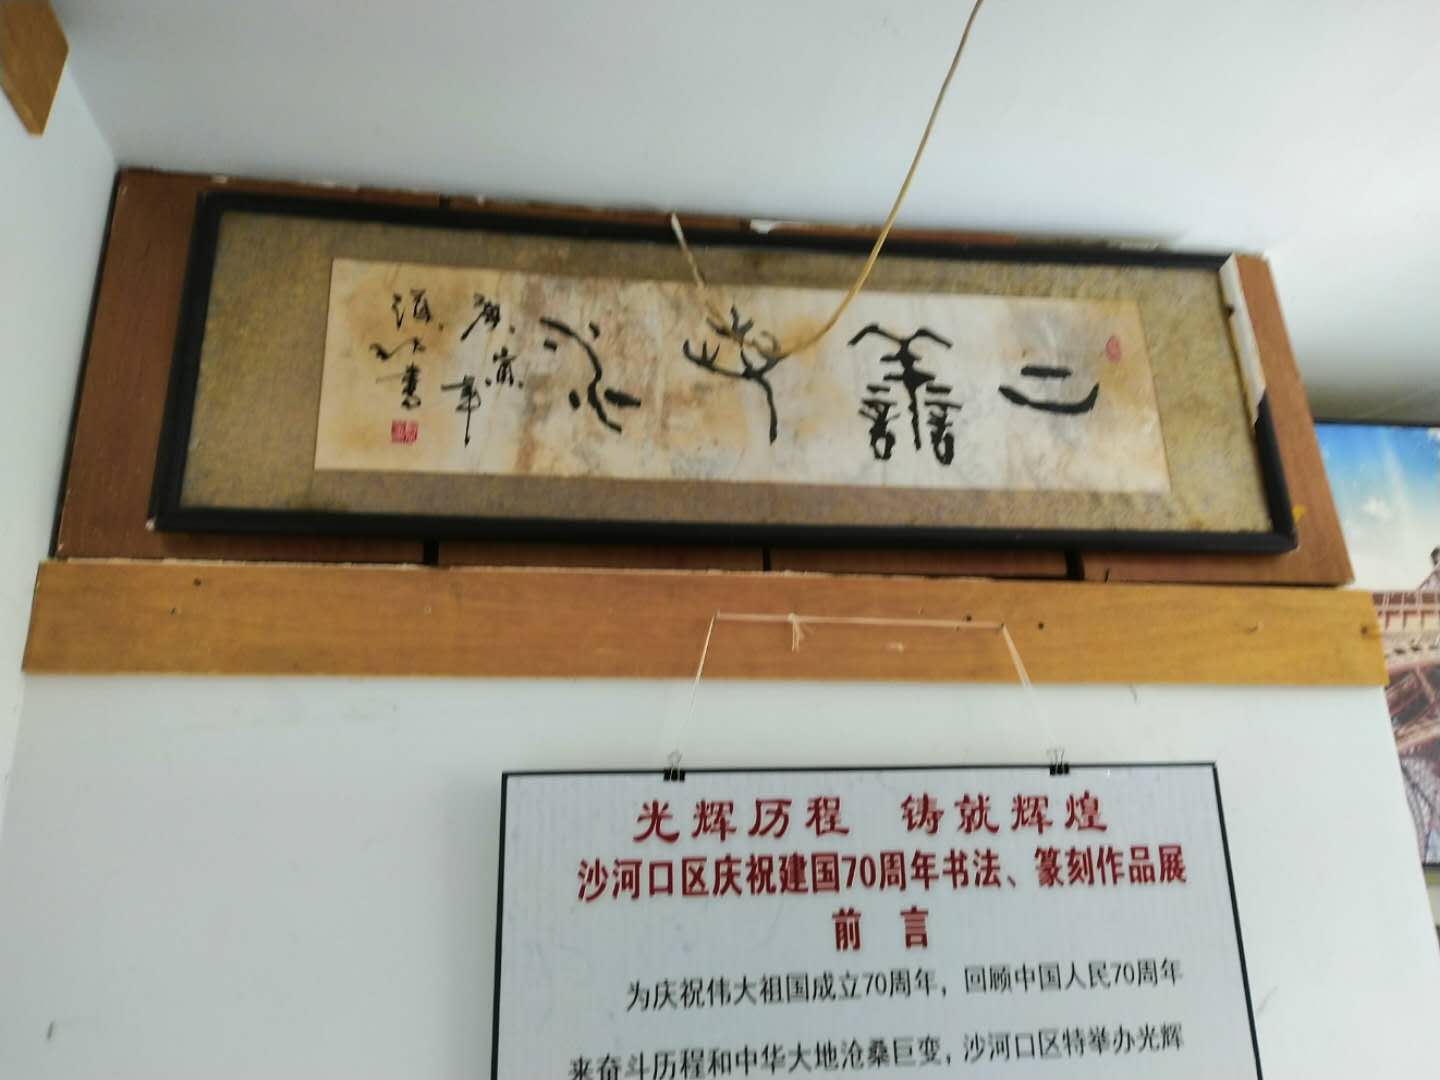 上善若水
庚寅年
书
光辉历程 铸就辉煌
沙河口区庆祝建国70周年书法、篆刻作品展
前 言
为庆祝伟大祖国成立70周年，回顾中国人民70周年
来奋斗历程和中华大地沧桑巨变，沙河口区特举办光辉